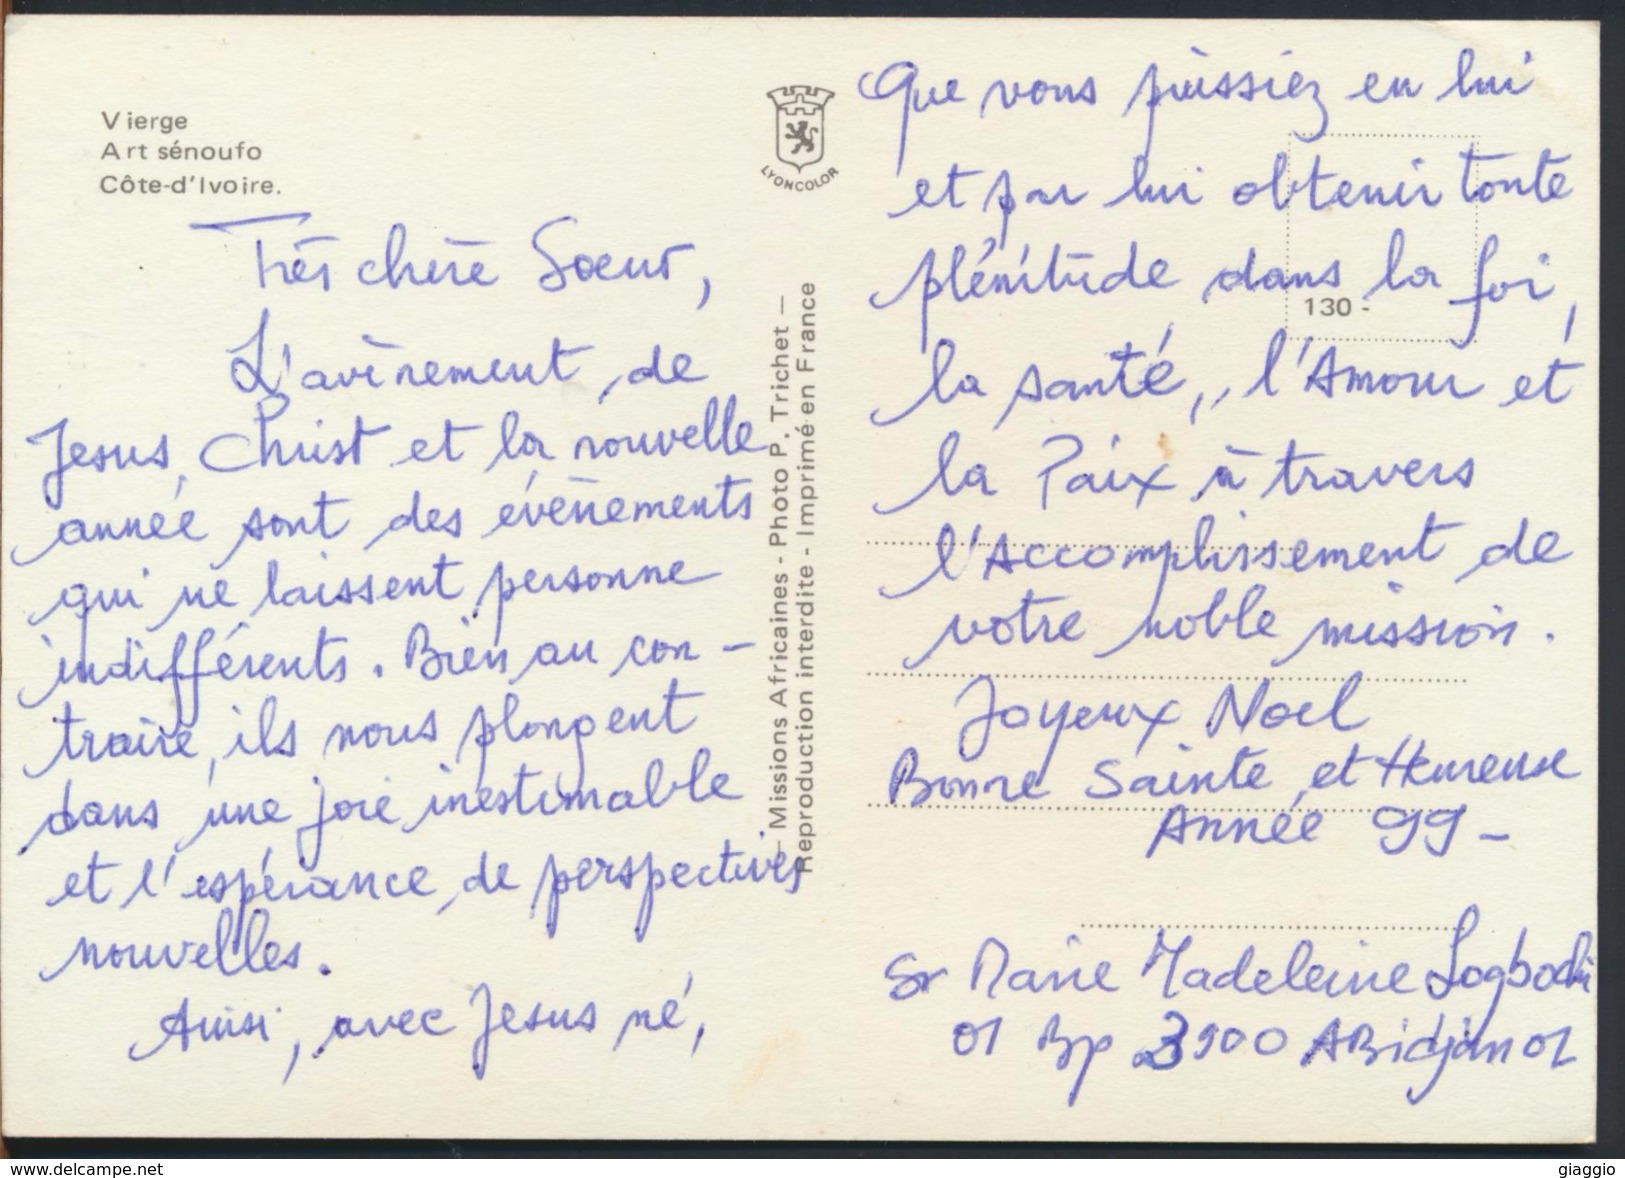 Vierge
Art sénoufo
Côte-d'Ivoire.
LYONCOLOR
Très chère Soeur,
L'avènement de
Jesus Christ et la nouvelle
année sont des évènements
qui ne laissent personne
indifférents. Bien au con-
traire, ils nous plongent
dans une joie inestimable
et l'espérance de perspectives
nouvelles.
Ainsi, avec Jesus né,
— Missions Africaines - Photo P. Trichet —
Reproduction interdite - Imprimé en France
Que vous puissiez en lui
et par lui obtenir toute
plénitude dans la foi,
130 -
la santé, l'Amour et
la Paix à travers
l'Accomplissement de
votre noble mission.
Joyeux Noel
Bonne Sainte et Heureuse
Année 99 -
Sr Marie Madeleine
01 Bp 3900 ABidjan 01
www.delcampe.net
giaggio